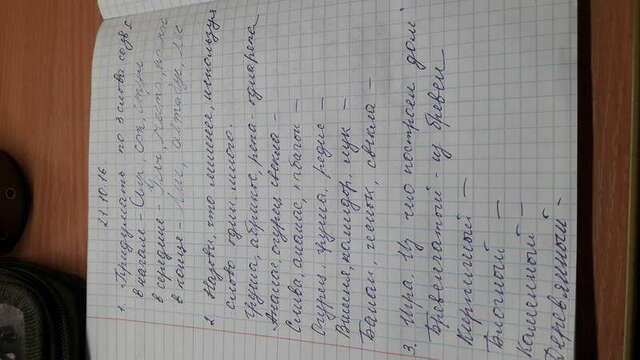 21.10.16
1. Придумать по 3 слова со зв С
в начале - Сыр, сок, стул
в середине -
в конце - автобус, лес
2. Назови, что лишнее, используя
слово один, много.
Груша, абрикос, репа - одна репа
Ананас, огурец свекла -
Слива, ананас, кабачок -
Огурец, груша, редис -
Вишня, помидор, лук -
Банан, чеснок, свекла -
3. Игра. Из чего построен дом
Бревенчатый - из бревен
Кирпичный -
Блочный -
Каменный -
Деревянный -